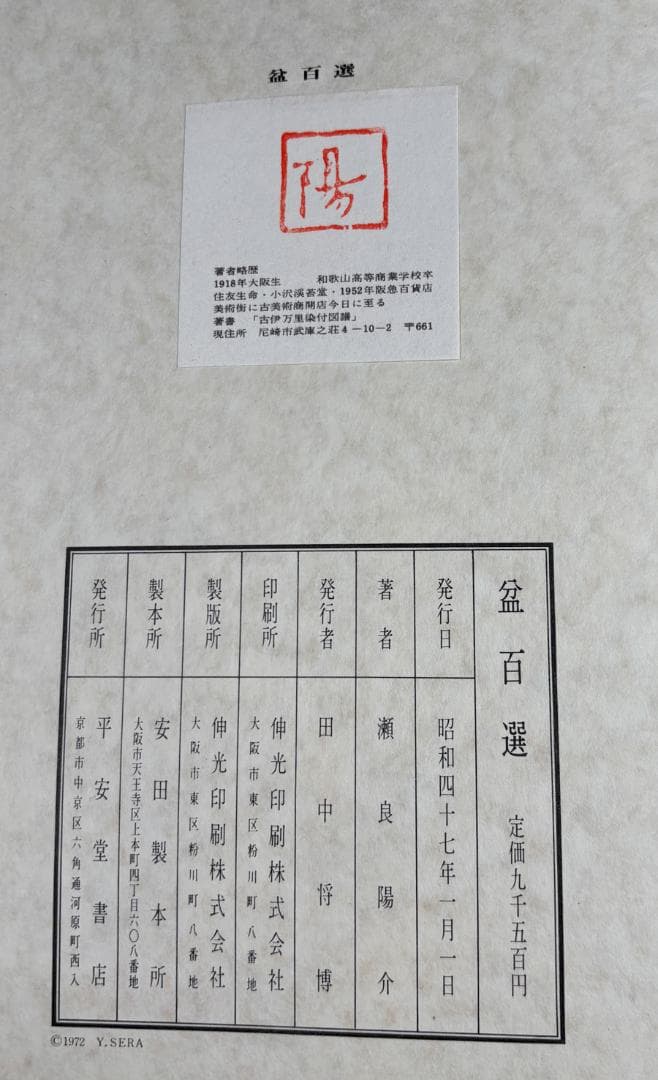 盆百選
陽
著者略歴
1918年大阪生　和歌山高等商業学校卒
住友生命・小沢渓苔堂・1952年阪急百貨店
美術街に古美術商開店今日に至る
著書　「古伊万里染付図譜」
現住所　尼崎市武庫之荘4－10－2　〒661
盆百選　定価九千五百円
発行日　昭和四十七年一月一日
著者　瀬良陽介
発行者　田中将博
印刷所　伸光印刷株式会社
大阪市東区粉川町八番地
製版所　伸光印刷株式会社
大阪市東区粉川町八番地
製本所　安田製本所
大阪市天王寺区上本町四丁目六〇八番地
発行所　平安堂書店
京都市中京区六角通河原町西入
©1972 Y.SERA